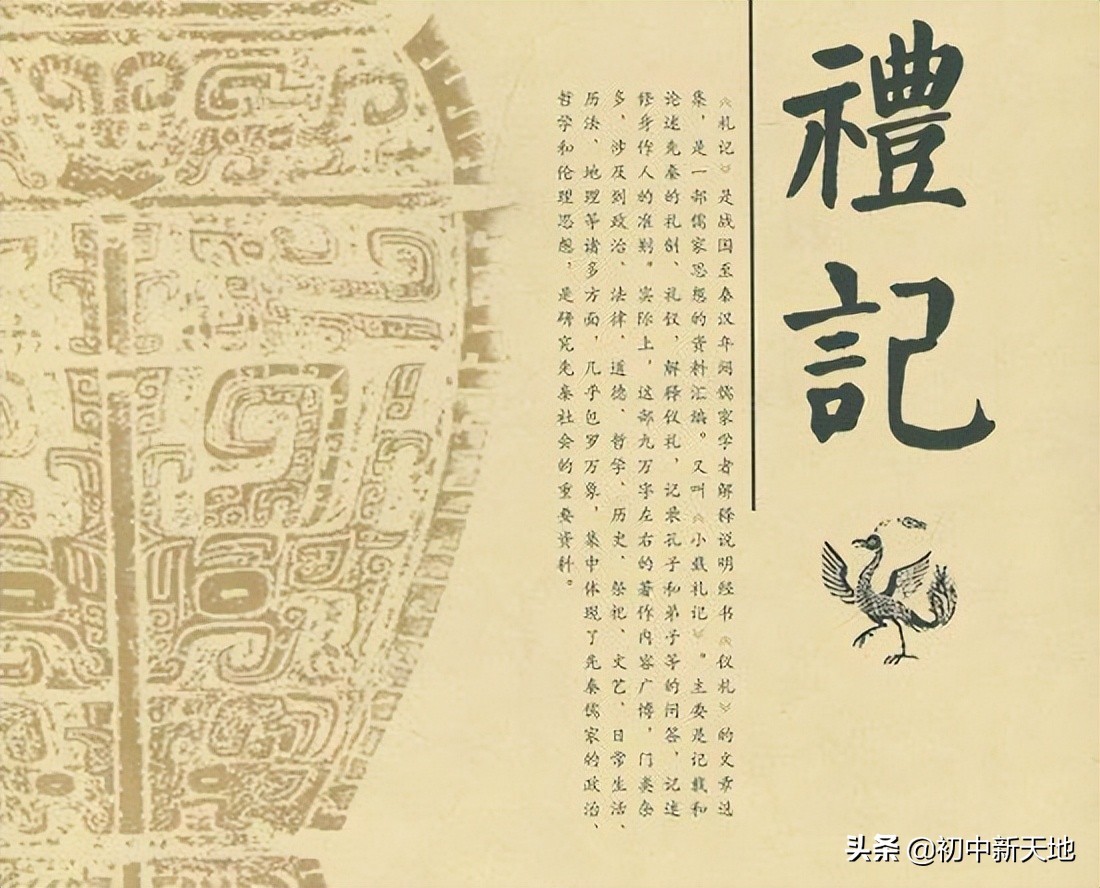 禮記
《礼记》是战国至秦汉年间儒家学者解释说明经书《仪礼》的文章选
集，是一部儒家思想的资料汇编。又叫《小戴礼记》。主要是记载和
论述先秦的礼制、礼仪，解释仪礼，记录孔子和弟子等的问答，记述
修身作人的准则。实际上，这部九万字左右的著作内容广博，门类杂
多，涉及到政治、法律、道德、哲学、历史、祭祀、文艺、日常生活、
历法、地理等诸多方面，几乎包罗万象，集中体现了先秦儒家的政治、
哲学和伦理思想，是研究先秦社会的重要资料。
头条 @初中新天地